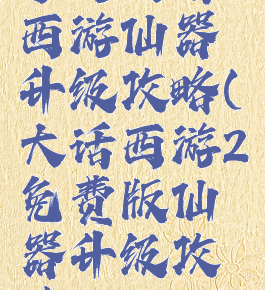 西游仙器
升级攻略(
大话西游2
免费版仙
器升级攻